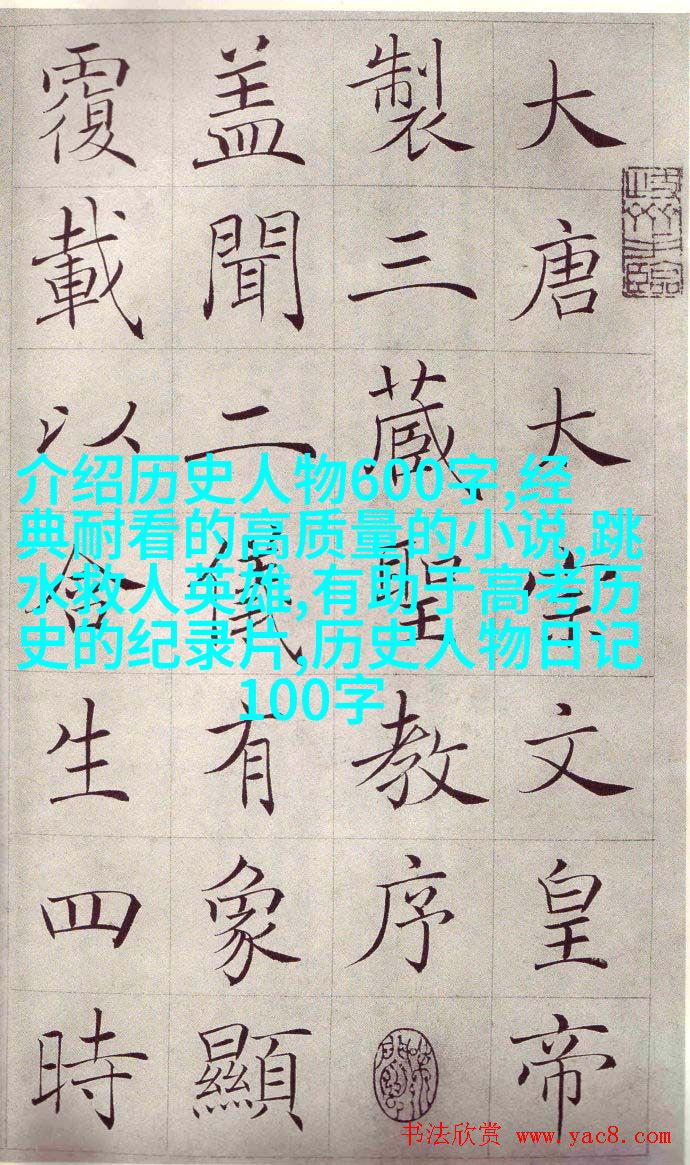 大唐太宗文皇帝
製三藏聖教序
盖聞二儀有象顯
覆載以含生四時
介绍历史人物600字,经
典耐看的高质量的小说,跳
水救人英雄,有助于高考历
史的纪录片,历史人物日记
100字
书法欣赏 www.yac8.com